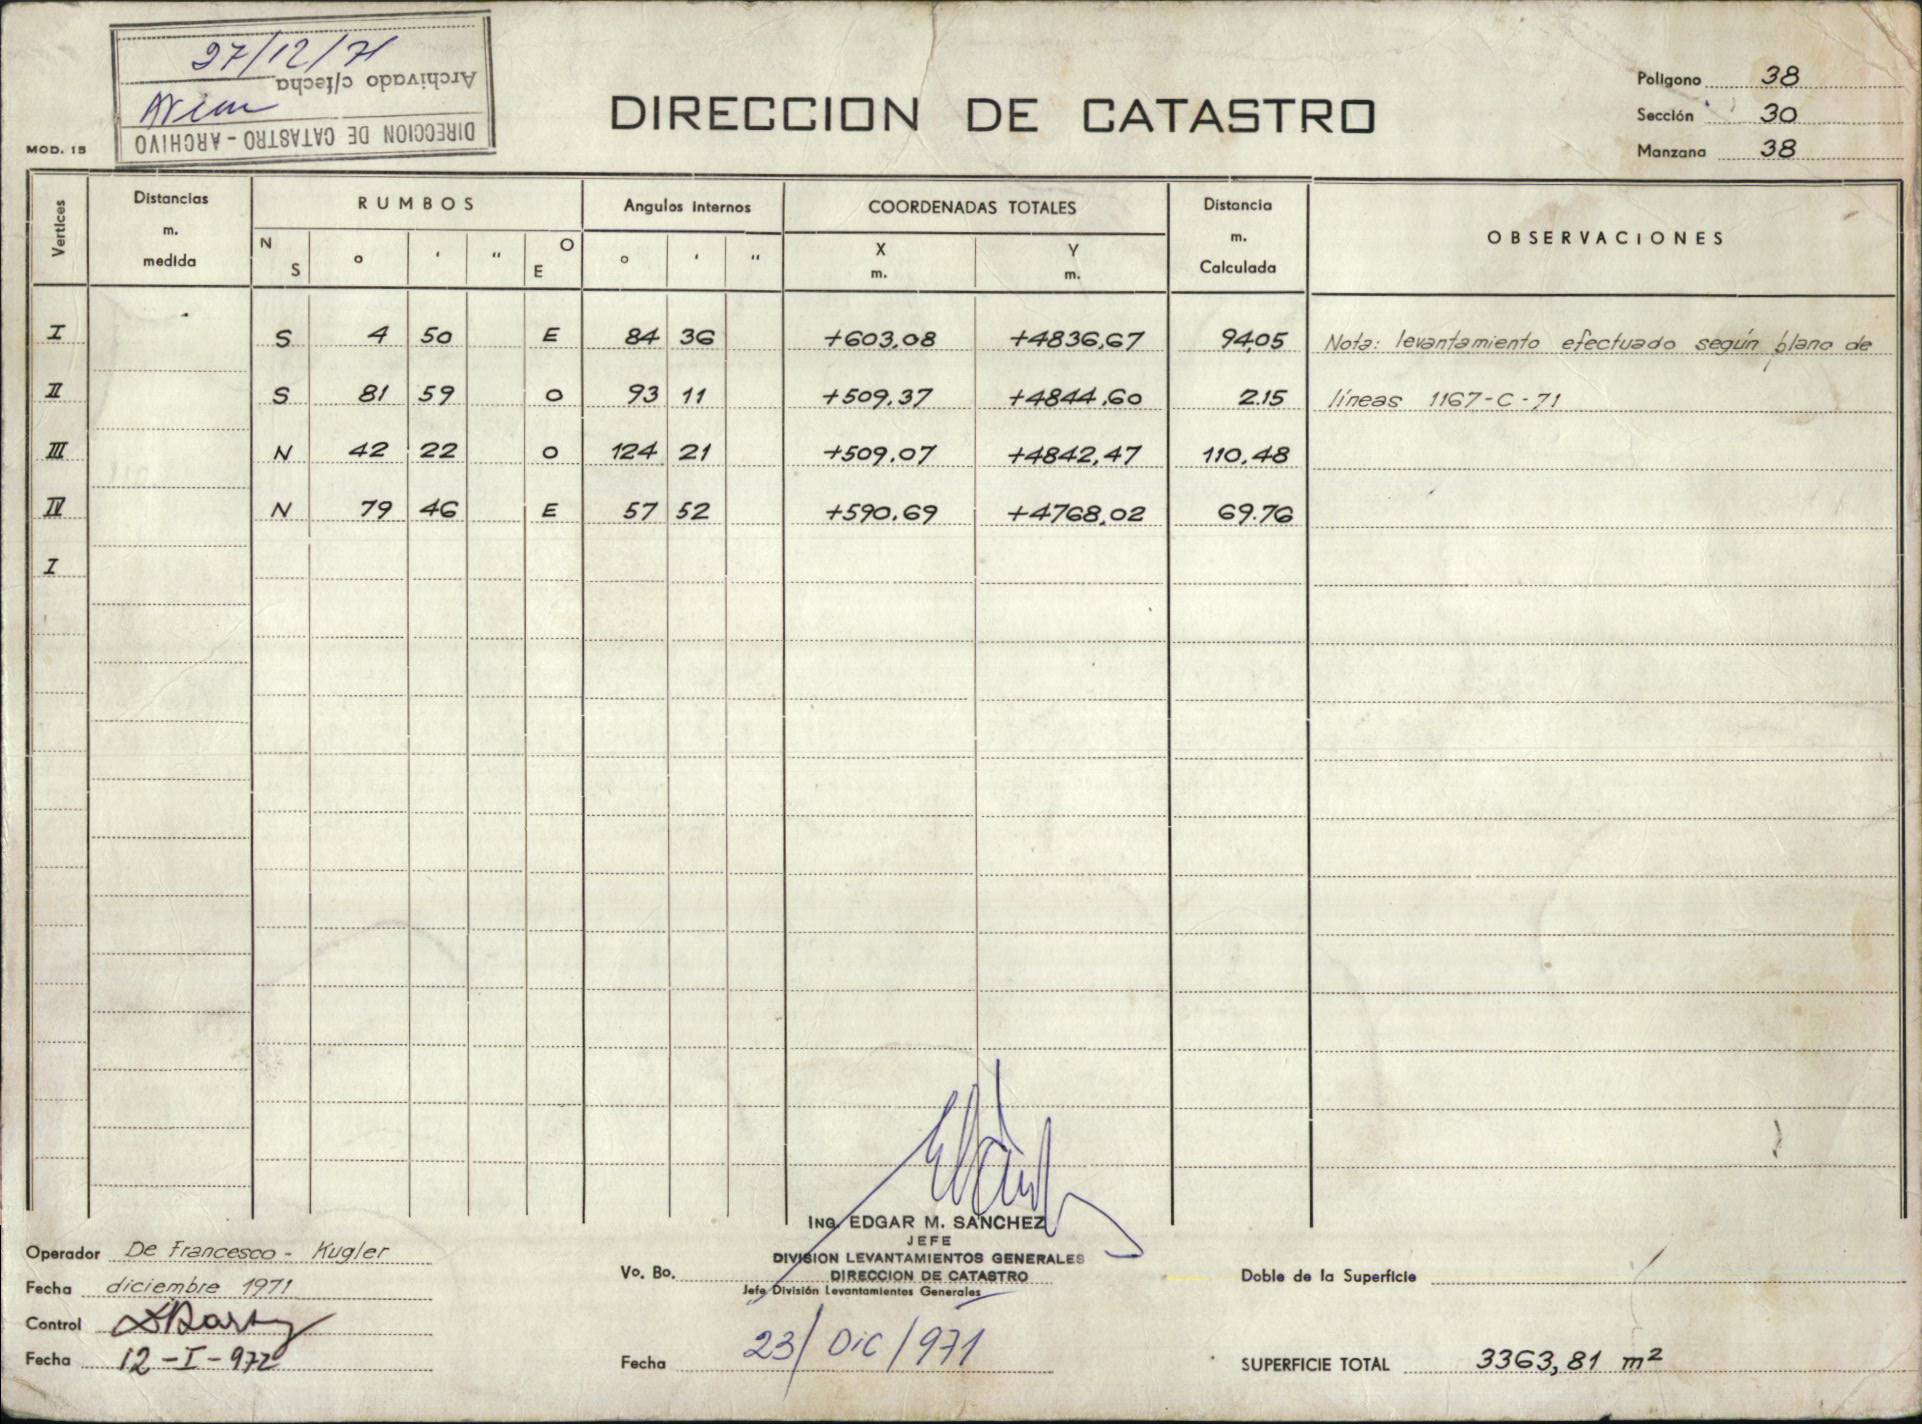 27/12/71
Archivado c/fecha
DIRECCION DE CATASTRO - ARCHIVO
MOD. 15
DIRECCION DE CATASTRO
Poligono 38
Sección 30
Manzana 38
Vertices Distancias m. medida RUMBOS Angulos internos COORDENADAS TOTALES Distancia m. Calculada OBSERVACIONES
N S ° ' " O E ° ' " X m. Y m.
I S 4 50 E 84 36 +603,08 +4836,67 94,05 Nota: levantamiento efectuado según plano de
II S 81 59 O 93 11 +509.37 +4844.60 2.15 líneas 1167-C-71
III N 42 22 O 124 21 +509.07 +4842,47 110,48
IV N 79 46 E 57 52 +590.69 +4768,02 69.76
I
ING. EDGAR M. SANCHEZ
JEFE
DIVISION LEVANTAMIENTOS GENERALES
DIRECCION DE CATASTRO
Operador De Francesco - Kugler
Vo. Bo.
Jefe División Levantamientos Generales
Doble de la Superficie
Fecha diciembre 1971
Control
Fecha 12-I-972
Fecha 23/Dic/971
SUPERFICIE TOTAL 3363,81 m²